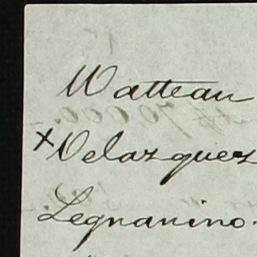 Watteau
x Velazquez
Legnanino.